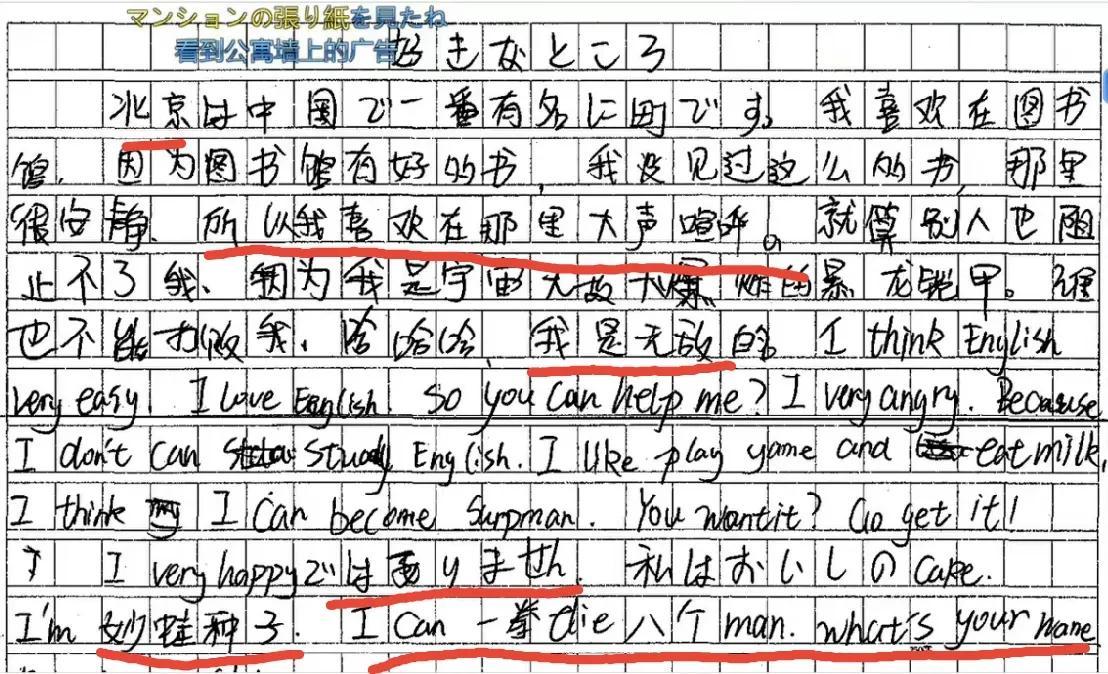 マンションの張り紙を見たね
看到公寓墙上的广告
好きなところ
北京は中国で一番有名に町です。我喜欢在图书
馆、因为图书馆有好的书，我没见过这么的书，那里
很安静、所以我喜欢在那里大声喧哗。就算别人也阻
止不了我、因为我是宇宙无敌大爆炸的暴龙铠甲。谁
也不能打败我、哈哈哈、我是无敌的 I think English
very easy. I Love English. So you can help me? I very angry. Because
I don't can study English. I like play game and eat milk.
I think I can become Surpman. You want it? Go get it!
I very happyではありません. 私はおいしのcake.
I'm 妙蛙种子. I can 一拳die八个man. what's your name